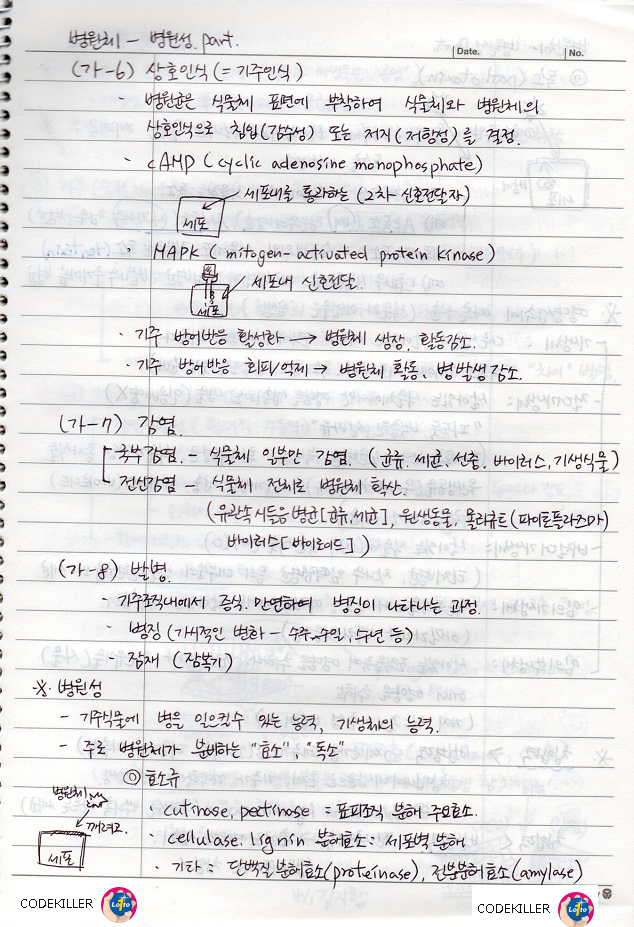 병원체 - 병원성. part.
Date. No.
(가-6) 상호인식 (= 기주인식)
· 병원균은 식물체 표면에 부착하여 식물체와 병원체의
상호인식으로 침입(감수성) 또는 저지(저항성)를 결정.
· cAMP (cyclic adenosine monophosphate)
세포내를 통과하는 (2차 신호전달자)
세포
· MAPK (mitogen-activated protein kinase)
세포내 신호전달.
세포
· 기주 방어반응 활성화 → 병원체 생장, 활동감소.
· 기주 방어반응 회피/억제 → 병원체 활동, 병발생 감소.
(가-7) 감염.
국부감염. - 식물체 일부만 감염. (균류, 세균, 선충, 바이러스, 기생식물)
전신감염 - 식물체 전체로 병원체 확산.
(유관속시들음병균[균류,세균], 원생동물, 몰리큐트(파이토플라즈마)
바이러스[바이로이드])
(가-8) 발병.
- 기주조직내에서 증식. 만연하여 병징이 나타나는 과정.
- 병징 (가시적인 변화 - 수주, 수일, 수년 등)
- 잠재 (잠복기)
※. 병원성
- 기주식물에 병을 일으킬수 있는 능력, 기생체의 능력.
- 주로 병원체가 분비하는 "효소", "독소"
◎ 효소류
병원체
깨려고
세포
· cutinose, pectinose = 표피조직 분해 주요효소.
· cellulase. lignin 분해효소: 세포벽 분해
· 기타: 단백질분해효소(proteinase), 전분분해효소(amylase)
CODEKILLER Lotto
CODEKILLER Lotto